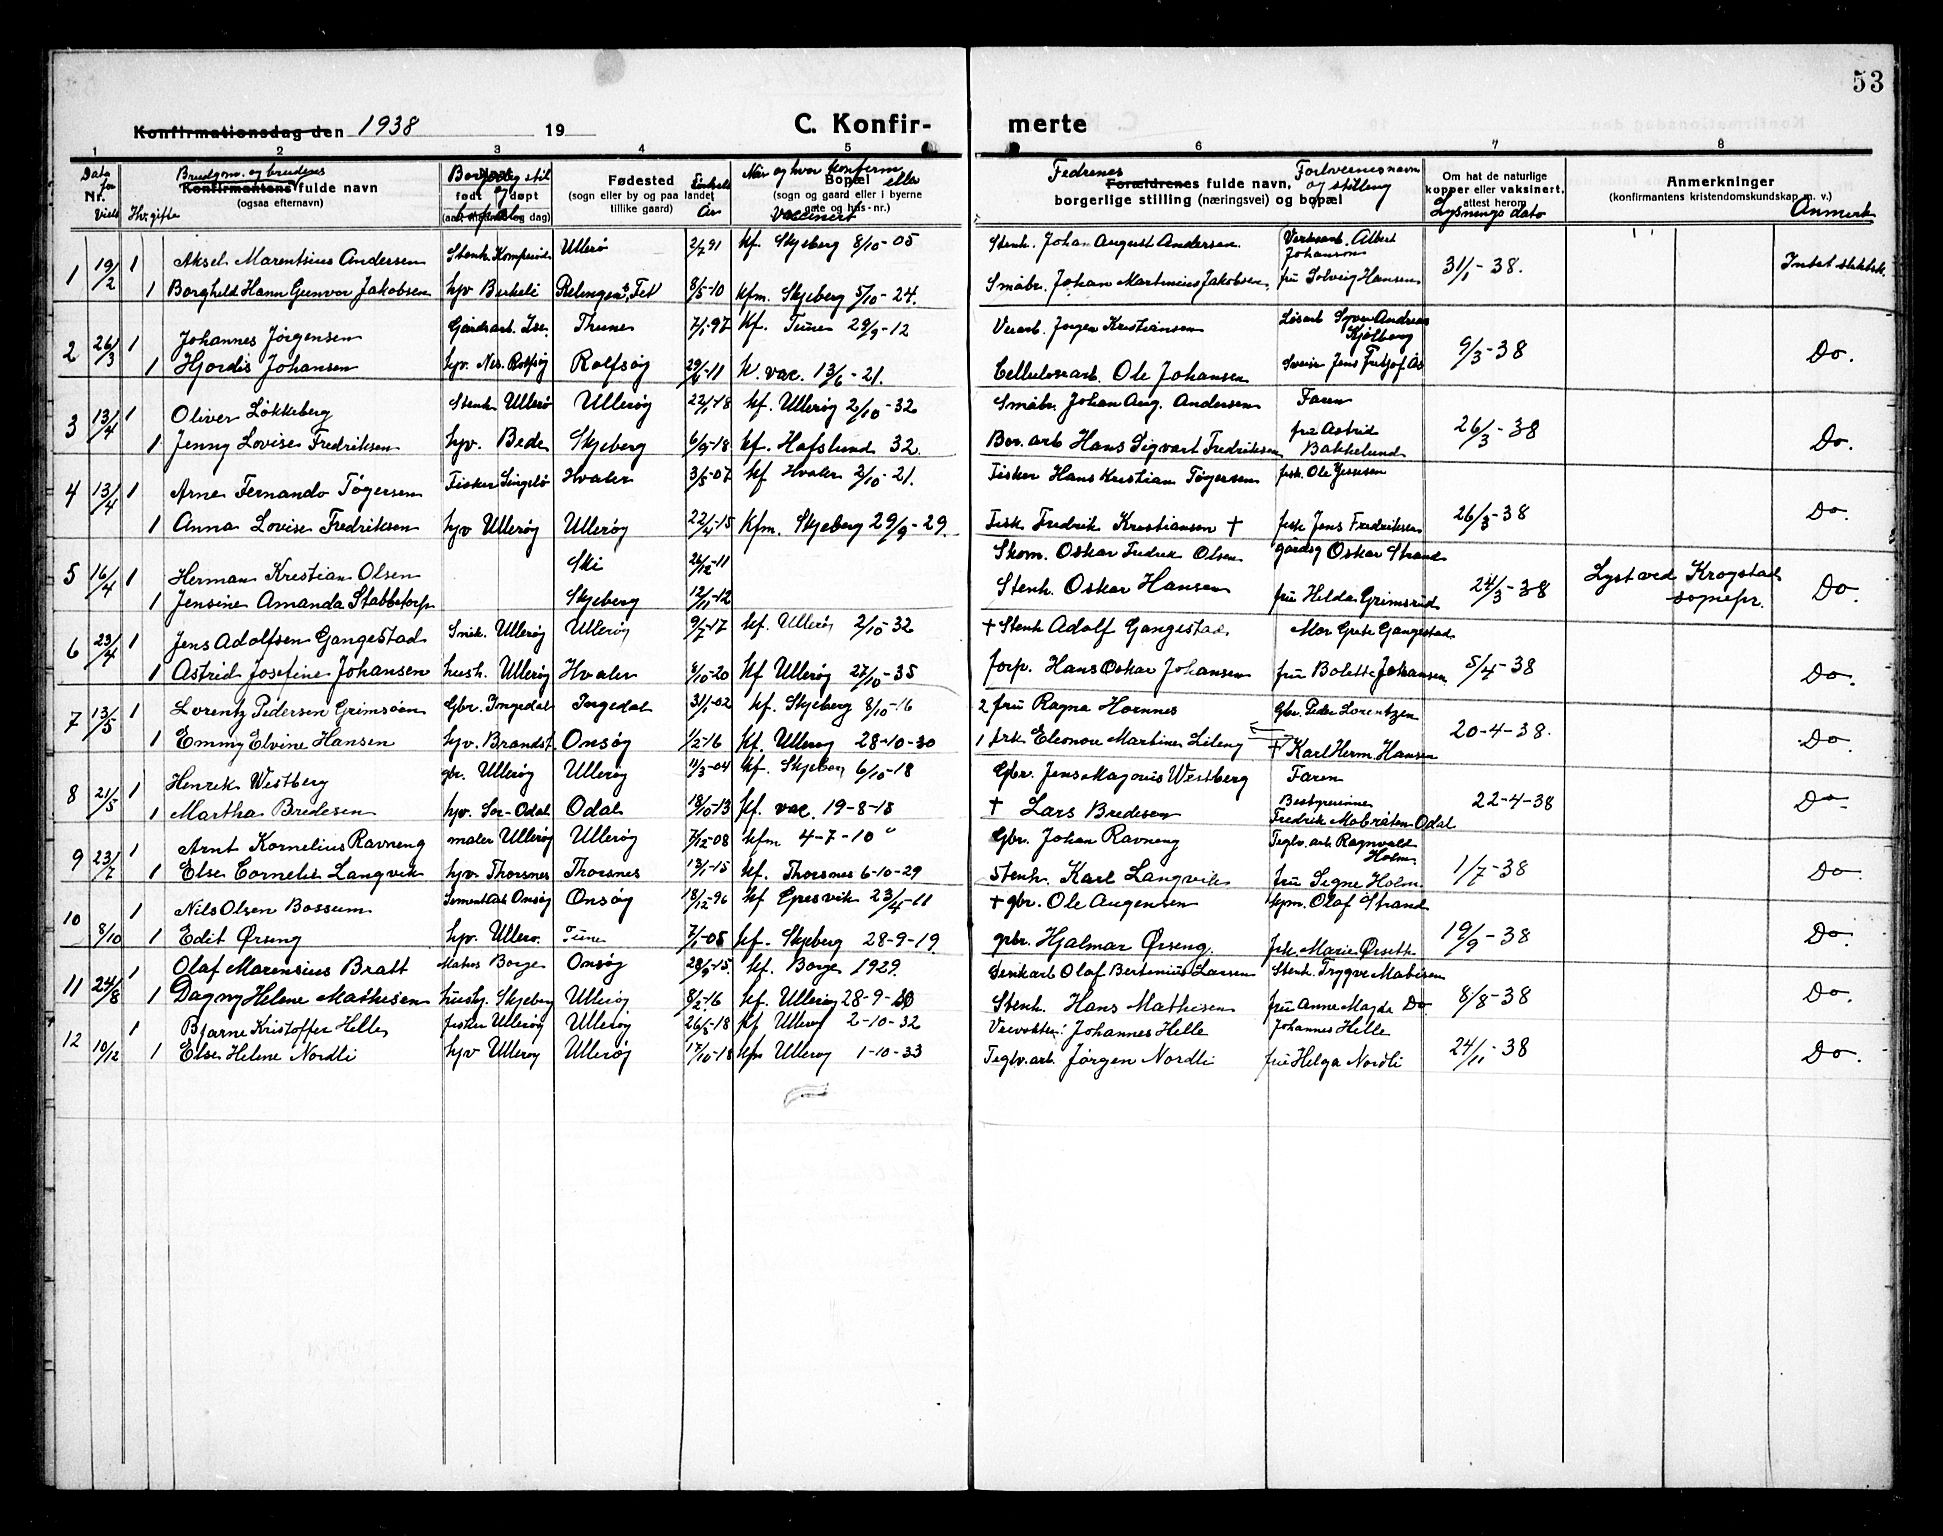 53
Konfirmationsdag den 1938 19
C. Konfir-
merte
1 2 3 4 5 6 7 8
Data for Nr. Viels
Hv. gifte
Brudgm. og brudens
Konfirmantens fulde navn
(ogsaa efternavn)
født døpt
Fødested
(sogn eller by og paa landet
tillike gaard)
Når og hvor konfirm. eller
Bopæl
(sogn og gaard eller i byerne
gate og hus-nr.)
vaccinert
Fedrenes
Forældrenes fulde navn,
borgerlige stilling (næringsvei) og bopæl
Forlovernes navn
og stilling
Om hat de naturlige
kopper eller vaksinert,
attest herom
Lysnings dato
Anmerkninger
(konfirmantens kristendomskundskap m. v.)
Anmerk
1 19/2 1 Aksel Marentius Andersen Stenh. Ullerø 2/7 91 kf. Skjeberg 8/10-05 Stenh. Johan August Andersen. Verksarb. Albert Johanson 31/1-38.
1 Borghild Hann Gunvor Jakobsen hjv Berkeli Fet 8/5-10 kfm. Skjeberg 5/10-24. Småbr. Johan Martinius Jakobsen, fru Solveig Hansen
2 26/3 1 Johannes Jørgensen Gårdsarb. Thune 7/1-97 Kf. Tune 29/9-12 Jørgen Kristiansen Andreas Kjølberg 9/3-38 Do.
1 Hjordis Johansen hjv. Rolfsøg 29/6-11 k. vac. 13/6-21. Cellulosearb. Ole Johansen Jens Fritjof Ås
3 13/4 1 Oliver Løkkeberg Stenh Ullerø Ullerøg 22/1-18 kf. Ullerøg 2/10-32 Småbr. Johan Aug. Andersen Faren 26/3-38 Do.
1 Jenny Lovise Fredriksen hjv. Bede Skjeberg 6/9-18 kf. Hafslund 32 Bor. arb Hans Sigvart Fredriksen fru Astrid Bakkelund
4 13/4 1 Arne Fernando Tøgersen Fisker Singelø Hvaler 3/5-07 kf Hvaler 2/10-21. Fisker Hans Kristian Tøgersen fisk. Ole 26/3-38 Do.
1 Anna Lovise Fredriksen hjv Ullerøg Ullerøg 22/4-15 Kfm. Skjeberg 29/9-29. Fisk Fredrik Kristiansen † fisk Jens Fredriksen
5 16/4 1 Herman Kristian Olsen Ski 26/12-11 Skom. Oskar Fredrik Olsen gårdsg Oskar Strand 24/3-38 Lyst ved Krogstad sognepr. Do.
1 Jensine Amanda Stabbetorp Skjeberg 12/11-12 Stenh. Oskar Hansen fru Helda Grimsrud
6 23/4 1 Jens Adolfsen Gangestad Snik. Ullerøg Ullerøg 9/7-17 kf. Ullerøg 2/10-32 † Stenh Adolf Gangestad Mor Grete Gangestad 5/4-38 Do.
1 Astrid Josefine Johansen hush. Ullerøg Hvaler 8/10-20 kf Ullerøg 27/10-35 forp. Hans Oskar Johansen fru Bolette Johansen
7 13/5 1 Lorentz Pedersen Grimsøen Gbr. Ingedal Ingedal 31/1-02 kf. Skjeberg 8/10-16 2 fru Ragna Hornnes Gbr. Peder Lorentzen 20-4-38. Do.
1 Emmy Elvine Hansen hjv. Brandst. Onsøg 1/2-16 kf. Ullerøg 28-10-30 1 frk Eleonore Martine Lileng † Karl Herm. Hansen
8 21/5 1 Henrik Westberg gbr. Ullerøg Ullerøg 11/3-04 kf. Skjeberg 6/10-18 Gbr. Jens Magnus Westberg Faren 22-4-38 Do
1 Martha Bredesen hjv. Sør-Odal Odal 18/10-13 kf. vac. 19-8-18 † Lars Bredesen Bestyrerinne Fredrik Mobråten Odal
9 23/7 1 Arnt Kornelius Ravneng maler Ullerøg Ullerøg 7/12-08 kfm 4-7-10 " Gbr. Johan Ravneng Teglv. arb Ragnvald Holm 1/7-38 Do
1 Else Cornelie Langvik hjv. Thorsnes Thorsnes 13/1-15 kf. Thorsnes 6-10-29 Stenh. Karl Langvik fru Signe Holm
10 8/10 1 Nils Olsen Bossum Onsøg Onsøg 18/12-96 kf Gresvik 23/4-11 † gbr. Ole Augensen kjm. Olaf Strand 19/9-38 Do
1 Edit Ørseng hjv. Ullerø. Tune 7/1-05 kf. Skjeberg 28-9-19. gbr. Hjalmar Ørseng. frk. Marie Ørseth
11 24/8 1 Olaf Marensius Bratt Borge Onsøg 28/9-15. kf. Borge 1929. Olaf Bertinius Larsen Stenh. Trygve Matisen 8/8-38 Do.
1 Dagny Helene Mathisen hush. Skjeberg Ullerøg 8/2-16 kf. Ullerøg 28-9-30 Stenh. Hans Mathisen fru Anne Magda Do
12 10/12 1 Bjarne Kristoffer Helle fisker Ullerøg Ullerøg 26/5-18 kf Ullerøg 2-10-32 Johannes Helle Johannes Helle 24/11-38 Do.
1 Else Helene Nordli hjv Ullerøy Ullerøg 17/10-18 kfm Ullerøy 1-10-33 Teglv. arb. Jørgen Nordli fru Helga Nordli